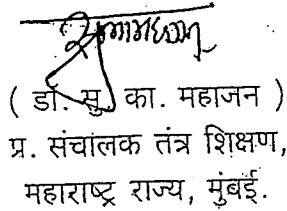 ( डॉ. सु. का. महाजन )
प्र. संचालक तंत्र शिक्षण,
महाराष्ट्र राज्य, मुंबई.